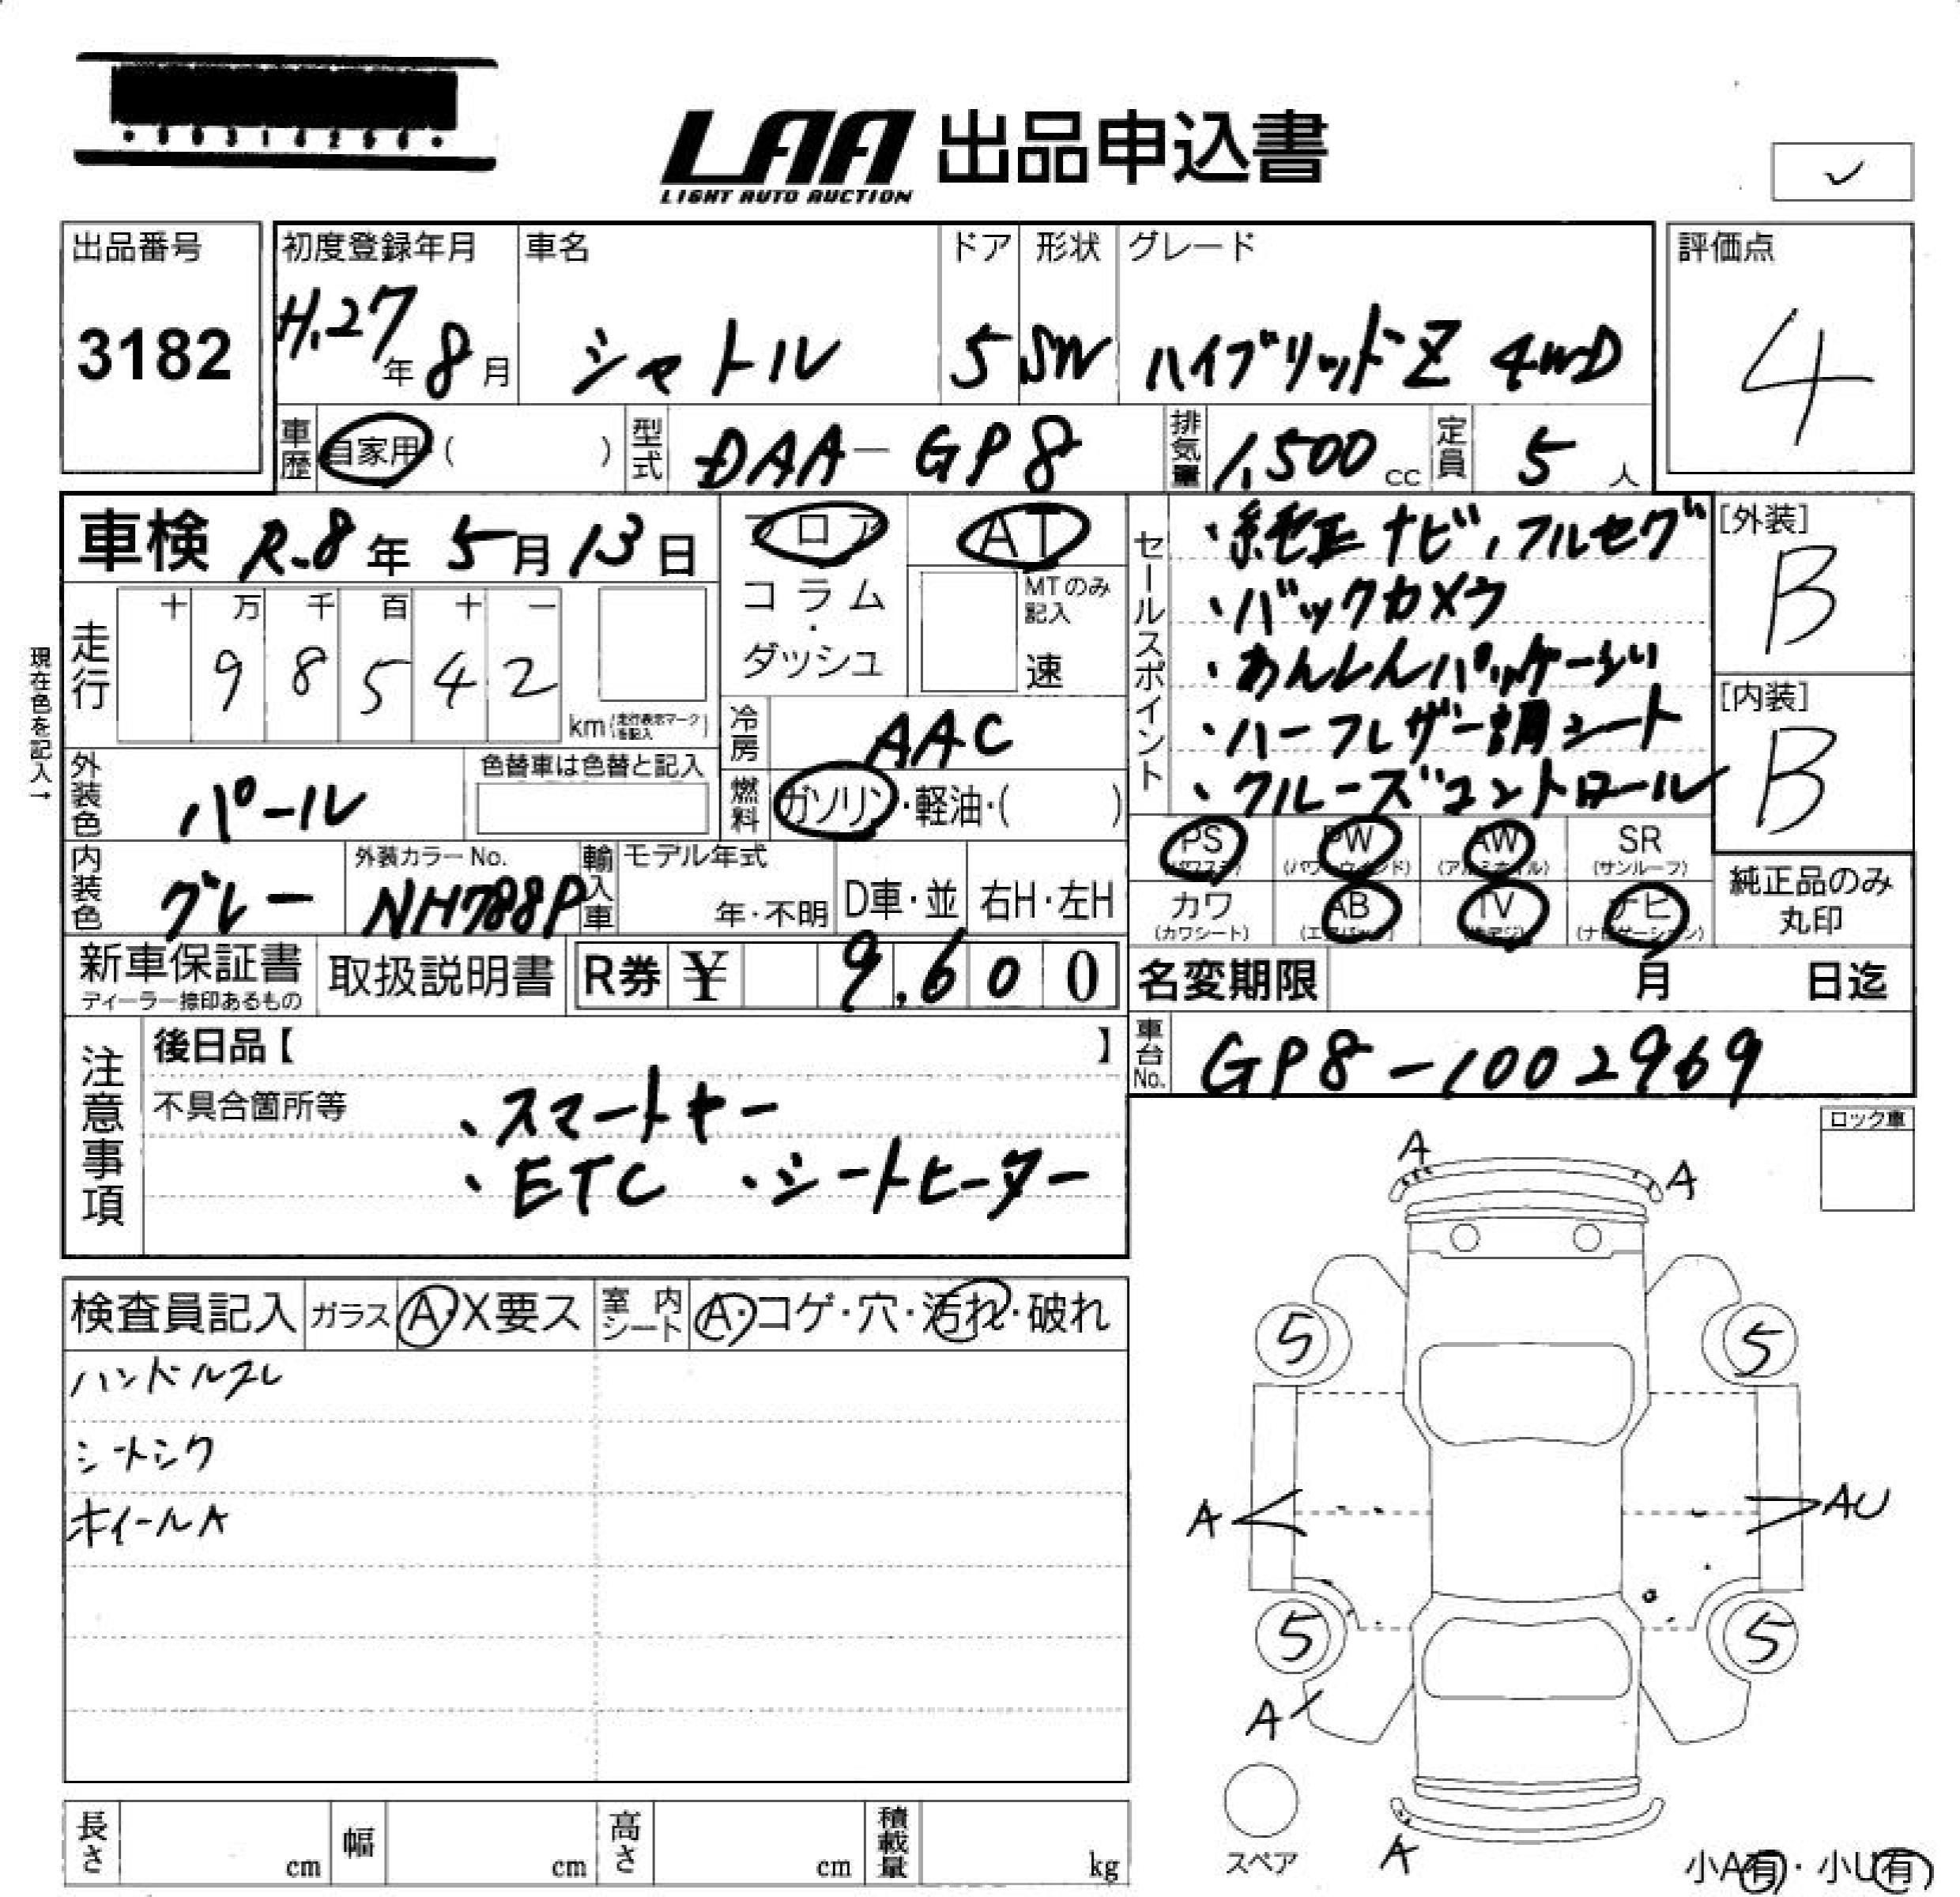 LAA 出品申込書
LIGHT AUTO AUCTION
✓
出品番号
3182
初度登録年月
H.27年8月
車名
シャトル
ドア
5
形状
SW
グレード
ハイブリッドZ 4WD
評価点
4
車歴
自家用( )
型式
DAA-GP8
排気量
1,500cc
定員
5人
車検 R.8年5月13日
フロア
コラム・ダッシュ
AT
MTのみ記入
速
セールスポイント
・純正ナビ,フルセグ
・バックカメラ
・あんしんパッケージ
・ハーフレザー調シート
・クルーズコントロール
[外装]
B
[内装]
B
現在色を記入→
走行
十 万 千 百 十 一
9 8 5 4 2
km(走行表示マークを記入)
冷房
AAC
外装色
パール
色替車は色替と記入
燃料
ガソリン・軽油・( )
PS (パワステ)
PW (パワーウインド)
AW (アルミホイル)
SR (サンルーフ)
カワ (カワシート)
AB (エアバッグ)
TV (地デジ)
ナビ (ナビゲーション)
純正品のみ丸印
内装色
グレー
外装カラーNo.
NH788P
輸入車
モデル年式
年・不明
D車・並
右H・左H
新車保証書
ディーラー捺印あるもの
取扱説明書
R券 ¥ 9,600
名変期限 月 日迄
車台No.
GP8-1002969
注意事項
後日品【 】
不具合箇所等
・スマートキー
・ETC ・シートヒーター
ロック車
A
A
検査員記入
ガラス A・X要ス
室内シート A・コゲ・穴・汚れ・破れ
ハンドルスレ
シートシワ
ホイールA
5
5
A
AU
5
5
A
スペア
A
小A有・小U有
長さ cm
幅 cm
高さ cm
積載量 kg